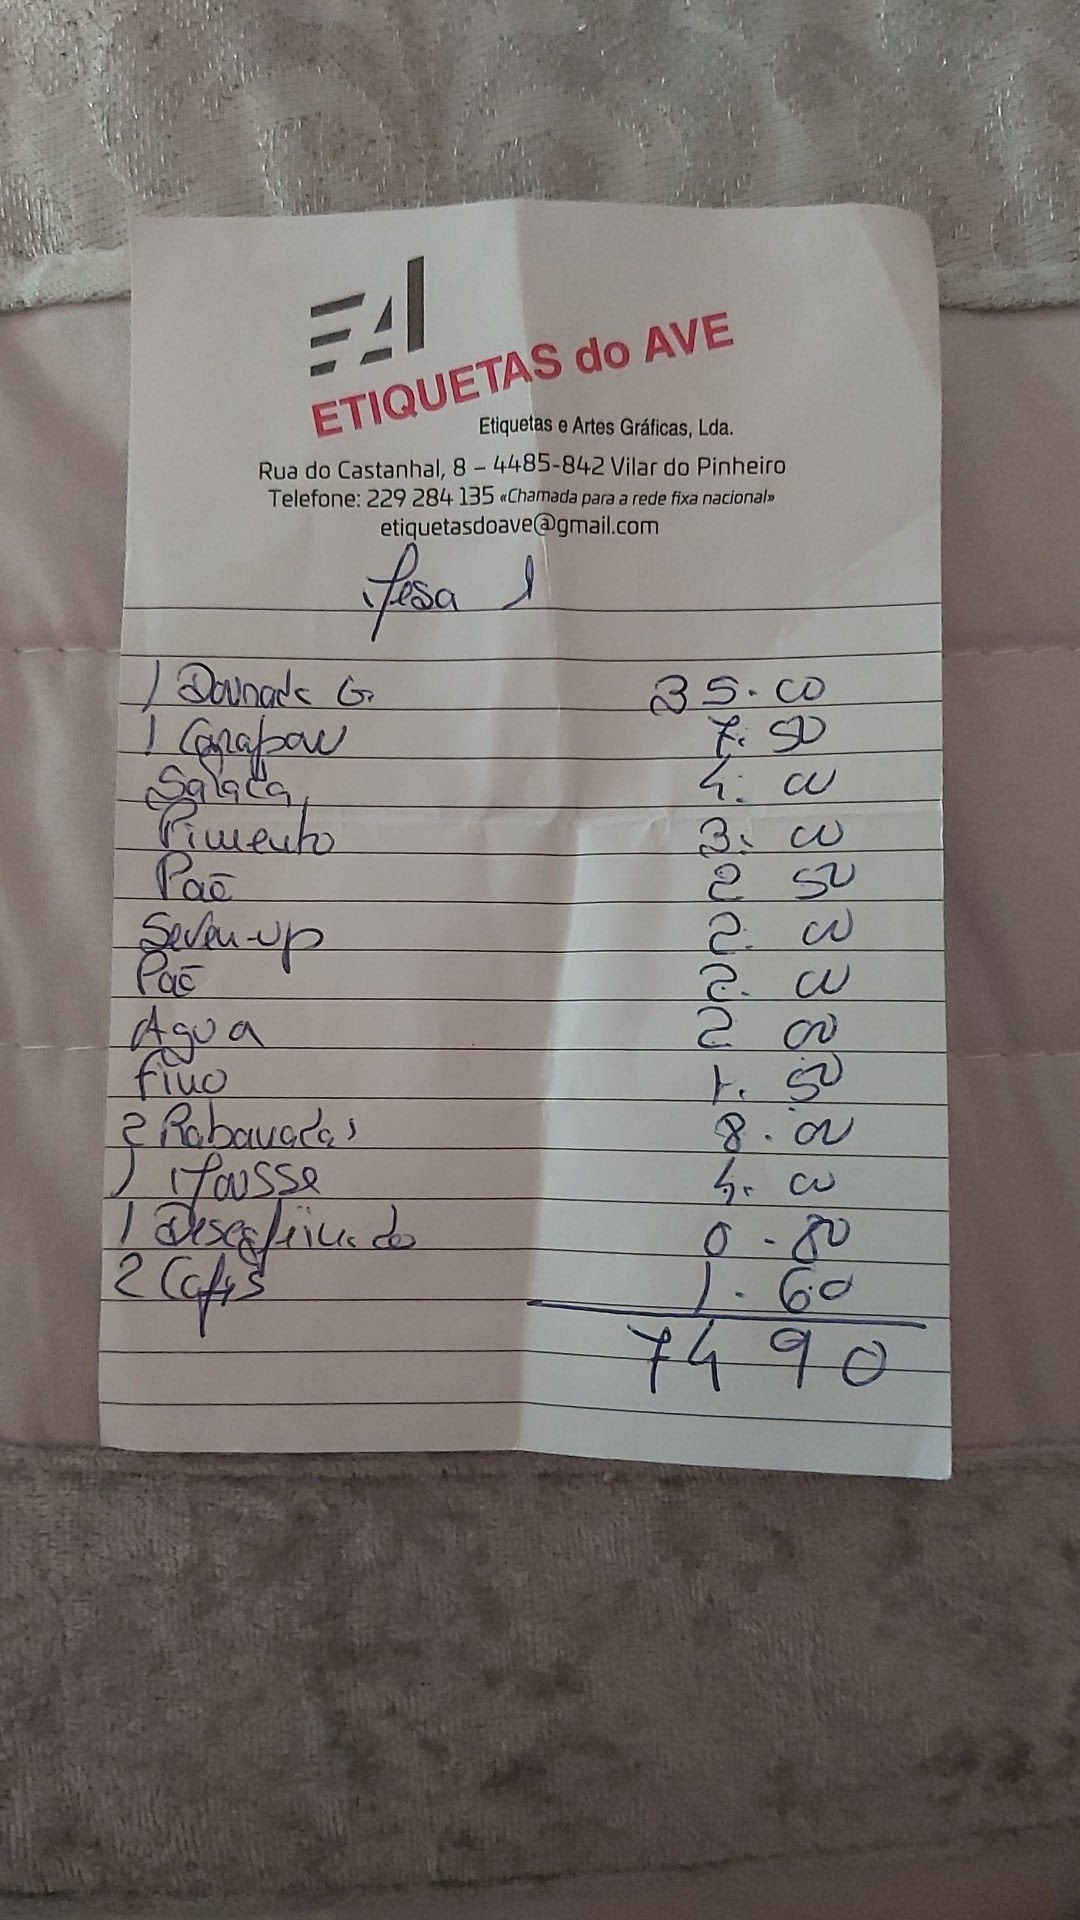 EA
ETIQUETAS do AVE
Etiquetas e Artes Gráficas, Lda.
Rua do Castanhal, 8 – 4485-842 Vilar do Pinheiro
Telefone: 229 284 135 «Chamada para a rede fixa nacional»
etiquetasdoave@gmail.com
Mesa 1
1 Dourada G. 35.00
1 Carapau 7.50
Salada 4.00
Pimento 3.00
Pão 2 50
Seven-up 2.00
Pão 2.00
Agua 2 00
fino 1.50
2 Rabanadas 8.00
1 Mousse 4.00
1 Descafeinado 0.80
2 Cafés 1.60
74 90